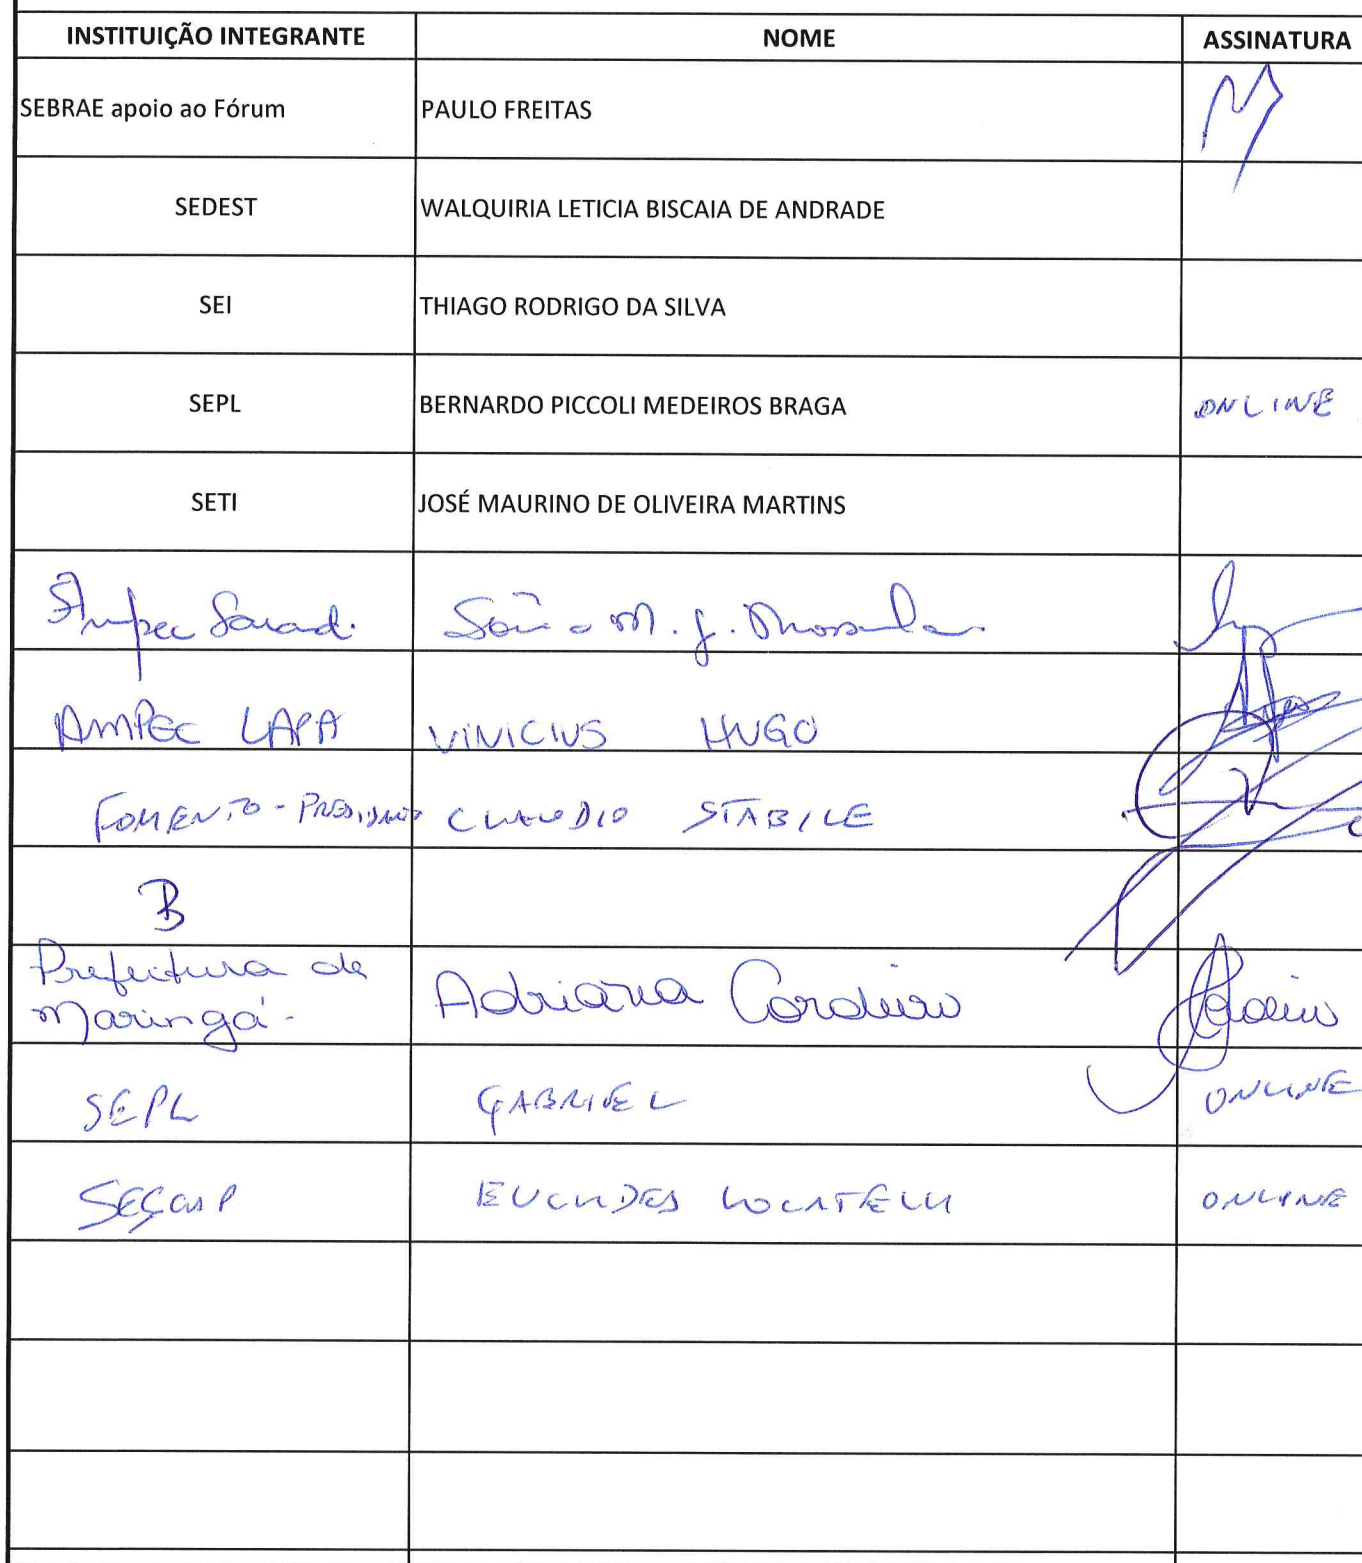 INSTITUIÇÃO INTEGRANTE NOME ASSINATURA
SEBRAE apoio ao Fórum PAULO FREITAS
SEDEST WALQUIRIA LETICIA BISCAIA DE ANDRADE
SEI THIAGO RODRIGO DA SILVA
SEPL BERNARDO PICCOLI MEDEIROS BRAGA ONLINE
SETI JOSÉ MAURINO DE OLIVEIRA MARTINS
Ampec M. J.
AMPEC LAPA VINICIUS HUGO
FOMENTO - CLAUDIO STABILE
B
Prefeitura de
Maringá - Adriana Cordeiro
SEPL GABRIEL ONLINE
EUCLIDES LOCATELLI ONLINE